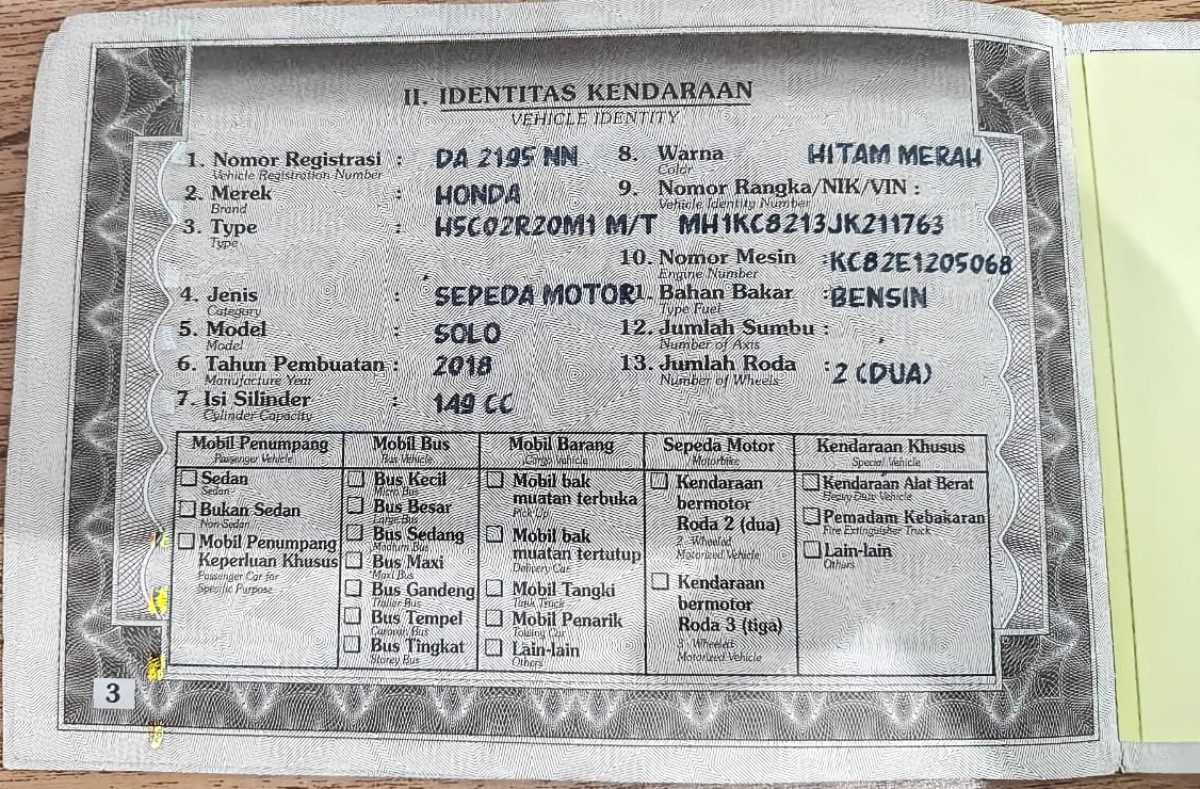 II. IDENTITAS KENDARAAN
VEHICLE IDENTITY
1. Nomor Registrasi : DA 2195 NN
Vehicle Registration Number
2. Merek : HONDA
Brand
3. Type : H5C02R20M1 M/T
Type
4. Jenis : SEPEDA MOTOR
Category
5. Model : SOLO
Model
6. Tahun Pembuatan : 2018
Manufacture Year
7. Isi Silinder : 149 CC
Cylinder Capacity
8. Warna HITAM MERAH
Color
9. Nomor Rangka/NIK/VIN :
Vehicle Identity Number
MH1KC8213JK211763
10. Nomor Mesin :KC82E1205068
Engine Number
1. Bahan Bakar :BENSIN
Type Fuel
12. Jumlah Sumbu :
Number of Axis
13. Jumlah Roda : 2 (DUA)
Number of Wheels
Mobil Penumpang
Passenger Vehicle
Sedan
Sedan
Bukan Sedan
Non-Sedan
Mobil Penumpang
Keperluan Khusus
Passenger Car for
Specific Purpose
Mobil Bus
Bus Vehicle
Bus Kecil
Micro Bus
Bus Besar
Large Bus
Bus Sedang
Medium Bus
Bus Maxi
Maxi Bus
Bus Gandeng
Trailer Bus
Bus Tempel
Caravan Bus
Bus Tingkat
Storey Bus
Mobil Barang
Cargo Vehicle
Mobil bak
muatan terbuka
Pick Up
Mobil bak
muatan tertutup
Delivery Car
Mobil Tangki
Tank Truck
Mobil Penarik
Towing Car
Lain-lain
Others
Sepeda Motor
Motorbike
Kendaraan
bermotor
Roda 2 (dua)
2 - Wheeled
Motorized Vehicle
Kendaraan
bermotor
Roda 3 (tiga)
3 - Wheeled
Motorized Vehicle
Kendaraan Khusus
Special Vehicle
Kendaraan Alat Berat
Heavy Duty Vehicle
Pemadam Kebakaran
Fire Extinguisher Truck
Lain-lain
Others
3